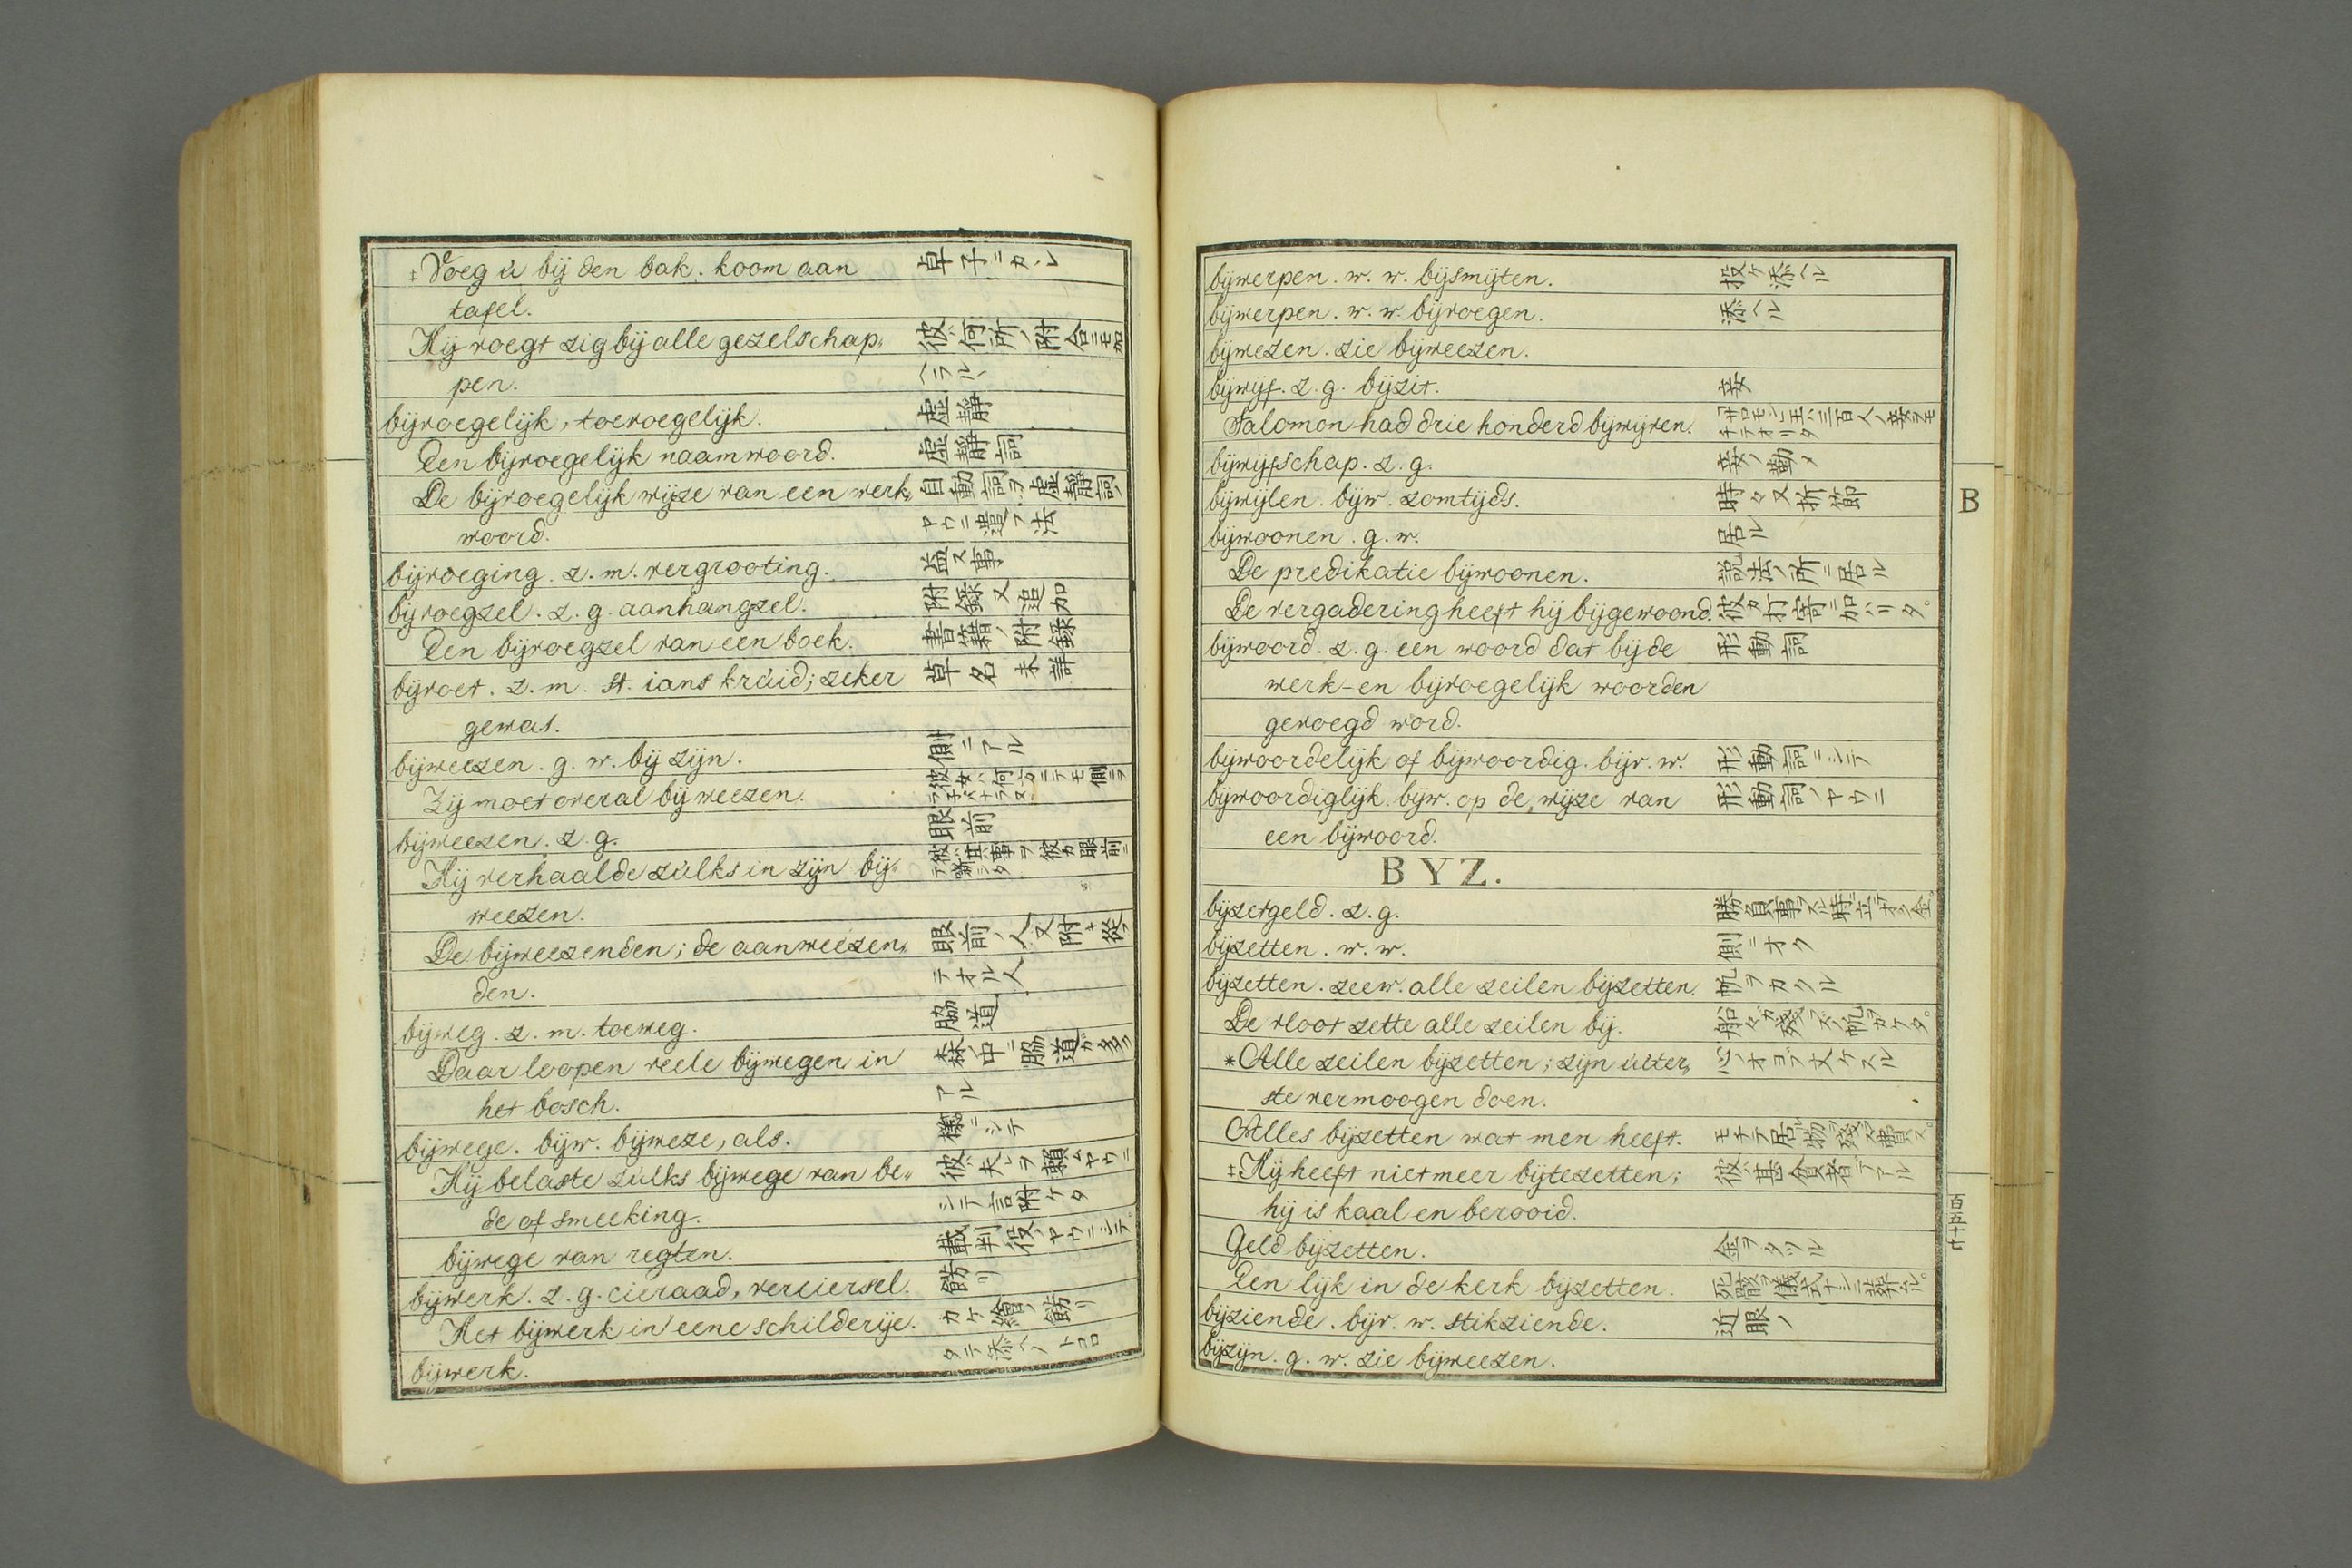 ‡Voeg ù bij den bak. koom aan 卓子ニカヽレ
tafel.
Hij voegt zig bij alle gezelschap„ 彼ハ何所ノ附合ニモ加
pen. ヘラル丶
bijvoegelijk, toevoegelijk. 虚静
Een bijvoegelijk naamwoord. 虚静詞
De bijvoegelijk wijze van een werk„ 自動詞ヲ虚静詞ノ
woord. ヤウニ遣フ法
bijvoeging. z. m. vergrooting. 益ス事
bijvoegzel. z. g. aanhangzel. 附録又追加
Een bijvoegzel van een boek. 書籍ノ附録
bijvoet. z. m. st. ians krùid; zeker 草名未詳
gewas.
bijweezen. g. w. bij zijn. 側ニアル
Zij moet overal bij weezen.
bijweezen. z. g. 眼前
Hij verhaalde zùlks in zijn bij„
weezen.
De bijweezenden; de aanweezen„ 眼前ノ人又附キ従
den. テオル人
bijweg. z. m. toeweg. 脇道
Daar loopen veele bijwegen in 森ノ中ニ脇道ガ多ク
het bosch. アル
bijwege. bijw. bijweze, als. 様ニシテ
Hij belaste zùlks bijwege van be„ 彼ハ夫レヲ頼ムヤウニ
de of smeeking. シテ言附ケタ
bijwege van regten. 裁判役ノヤウニシテ。
bijwerk. z. g. cieraad, verciersel. 餝リ
Het bijwerk in eene schilderije. カケ繪ノ餝リ
bijwerk.
bijwerpen. w. w. bijsmijten. 投ケ添ヘル
bijwerpen. w. w. bijvoegen. 添ヘル
bijwezen. zie bijweezen.
bijwijf. z. g. bijzit. 妾
Salomon had drie honderd bijwijven.
bijwijfschap. z. g. 妾ノ勤メ
bijwijlen. bijw. zomtijds. 時々又折節
bijwoonen. g. w. 居ル
De predikatie bijwoonen. 説法ノ所ニ居ル
De vergadering heeft hij bijgewoond. 彼タ打寄ニ加ハリタ。
bijwoord. z. g. een woord dat bij de 形動詞
werk-en bijvoegelijk woorden
gevoegd word.
bijwoordelijk of bijwoordig. bijv. w. 形動詞ニシテ
bijwoordiglijk. bijw. op de wijze van 形動詞ノヤウニ
een bijwoord.
BYZ.
bijzetgeld. z. g.
bijzetten. w. w. 側ニオク
bijzetten. zeew. alle zeilen bijzetten. 帆ヲカクル
De vloot zette alle zeilen bij.
*Alle zeilen bijzetten; zijn ùiter„ 心ノオヨブ丈ケスル
ste vermoogen doen.
Alles bijzetten wat men heeft.
‡Hij heeft niet meer bijtezetten; 彼ハ甚ダ貧者デアル
hij is kaal en berooid.
Geld bijzetten. 金ヲタツル
Een lijk in de kerk bijzetten.
bijziende. bijv. w. stikziende. 近眼ノ
bijzijn. g. w. zie bijweezen.
B
百五十七